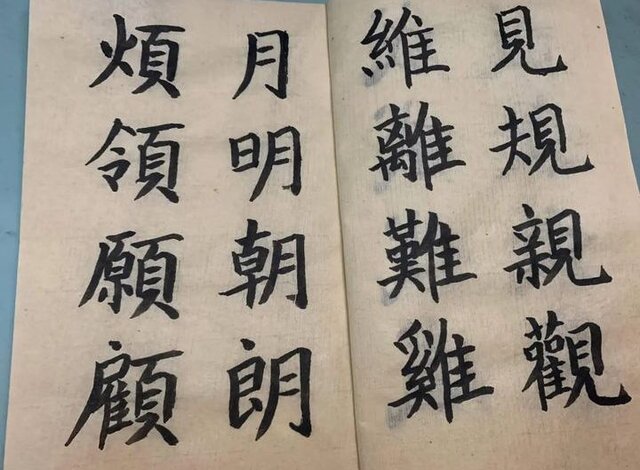 見規親觀
維離難雞
月明朝朗
煩領願顧